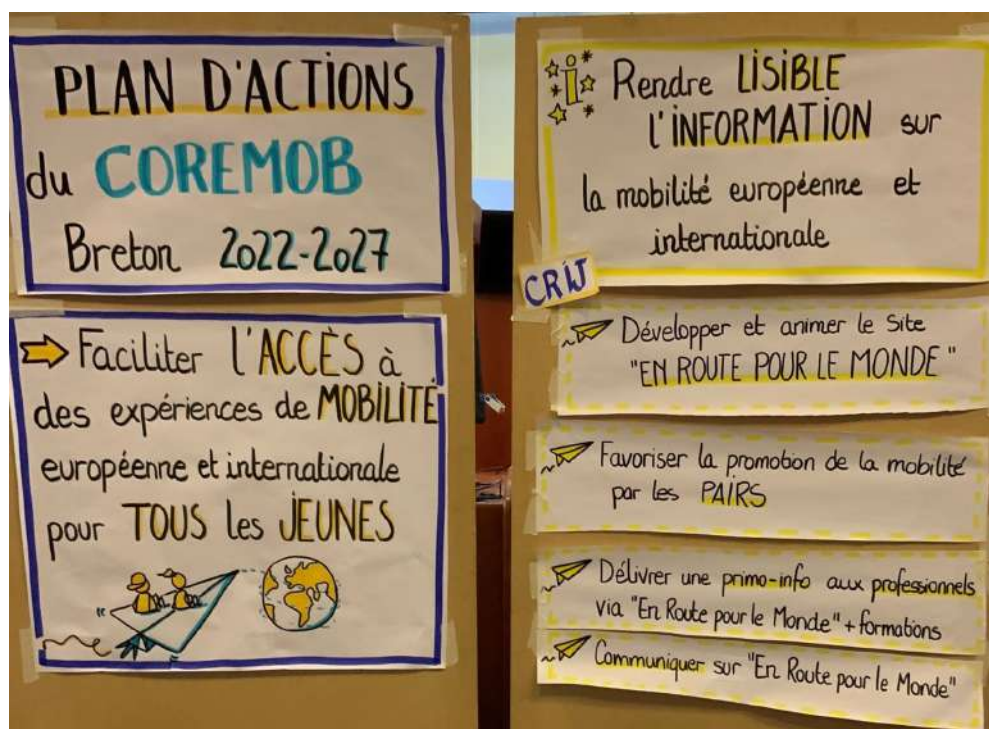 PLAN D'ACTIONS
du COREMOB
Breton 2022-2027
Faciliter l'ACCÈS à
des expériences de MOBILITÉ
européenne et internationale
pour TOUS les JEUNES
Rendre LISIBLE
l'INFORMATION sur
la mobilité européenne et
internationale
CRIJ
Développer et animer le Site
"EN ROUTE POUR LE MONDE"
Favoriser la promotion de la mobilité
par les PAIRS
Délivrer une primo-info aux professionnels
via "En Route pour le Monde" + formations
Communiquer sur "En Route pour le Monde"